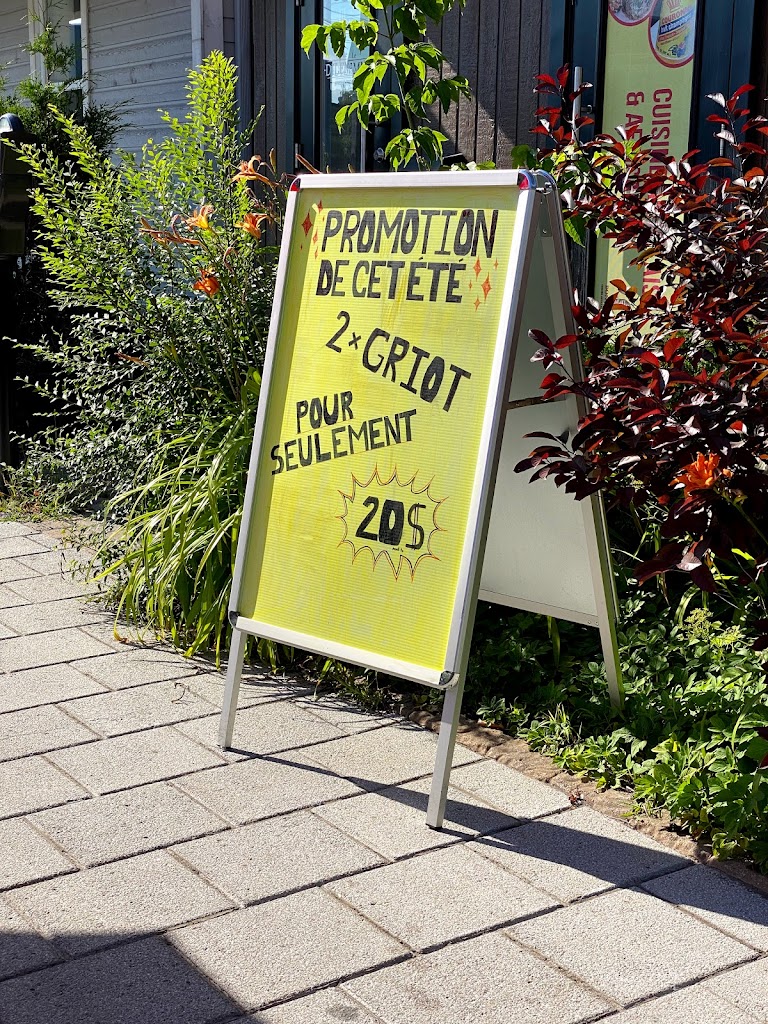 PROMOTION
DE CET ÉTÉ
2× GRIOT
POUR
SEULEMENT
20$
CUISINE
&